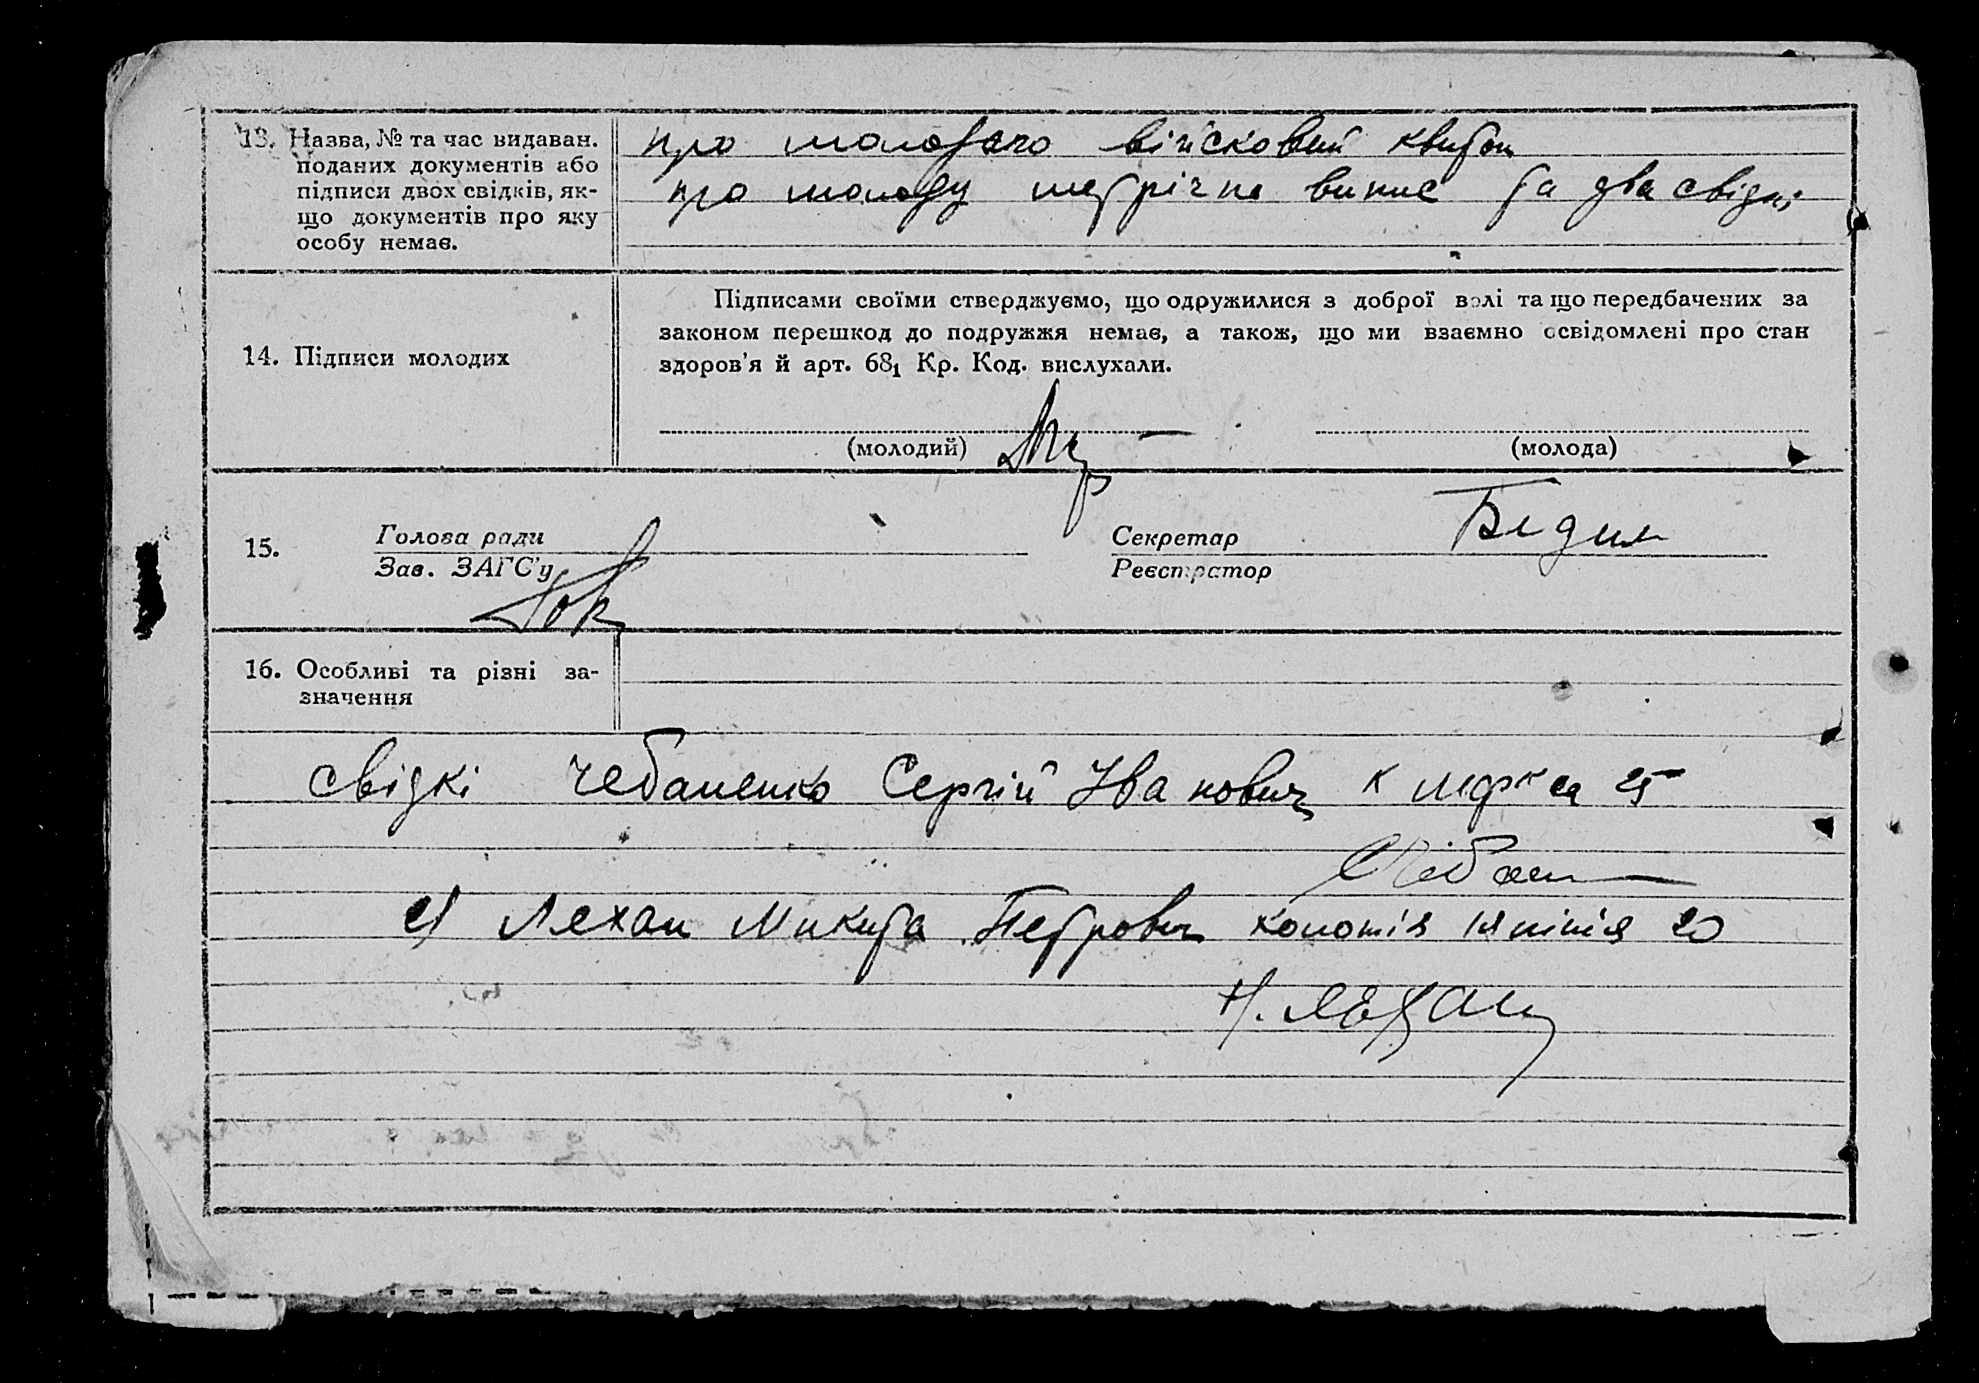 13. Назва, № та час видаван.
поданих документів або
підписи двох свідків, як-
що документів про яку
особу немає.
про молодого військовий квиток
про молоду метрічна випис та два свідкі
14. Підписи молодих
Підписами своїми стверджуємо, що одружилися з доброї волі та що передбачених за
законом перешкод до подружжя немає, а також, що ми взаємно освідомлені про стан
здоров'я й арт. 68₁ Кр. Код. вислухали.
(молодий) (молода)
15. Голова ради
Зав. ЗАГС'у
Секретар
Реєстратор
16. Особливі та різні за-
значення
свідкі Чебаненко Сергій Іванович К Маркса 25
2) Лехан Микита Петрович колонія лінія 20
Н. Лехан